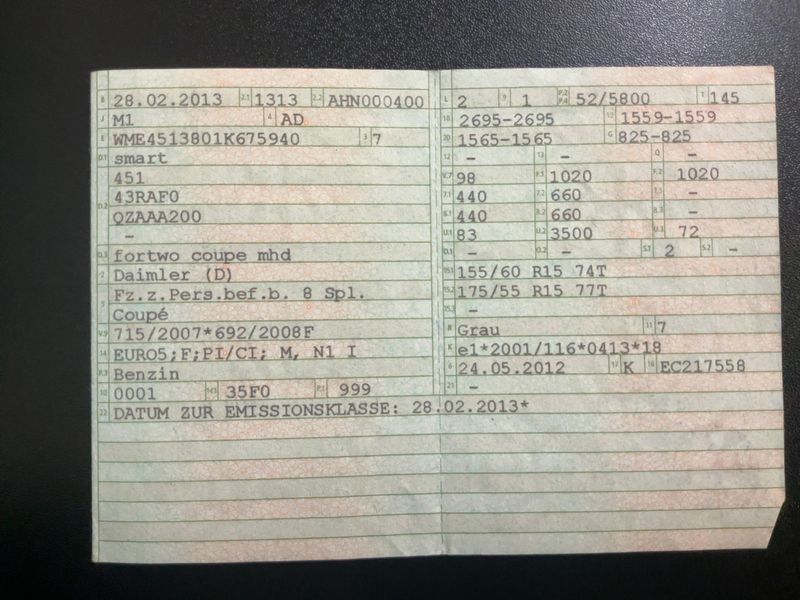 B 28.02.2013 2.1 1313 2.2 AHN000400
J M1 4 AD
E WME4513801K675940 3 7
D.1 smart
451
D.2 43RAF0
QZAAA200
-
D.3 fortwo coupe mhd
2 Daimler (D)
5 Fz.z.Pers.bef.b. 8 Spl.
Coupé
V.9 715/2007*692/2008F
14 EURO5;F;PI/CI; M, N1 I
P.3 Benzin
10 0001 14.1 35F0 P.1 999
22 DATUM ZUR EMISSIONSKLASSE: 28.02.2013*
L 2 9 1 P.2 P.4 52/5800 T 145
18 2695-2695 19 1559-1559
20 1565-1565 G 825-825
12 - 13 - Q -
V.7 98 F.1 1020 F.2 1020
7.1 440 7.2 660 7.3 -
8.1 440 8.2 660 8.3 -
U.1 83 U.2 3500 U.3 72
O.1 - O.2 - S.1 2 S.2 -
15.1 155/60 R15 74T
15.2 175/55 R15 77T
15.3 -
R Grau 11 7
K e1*2001/116*0413*18
6 24.05.2012 17 K 16 EC217558
21 -